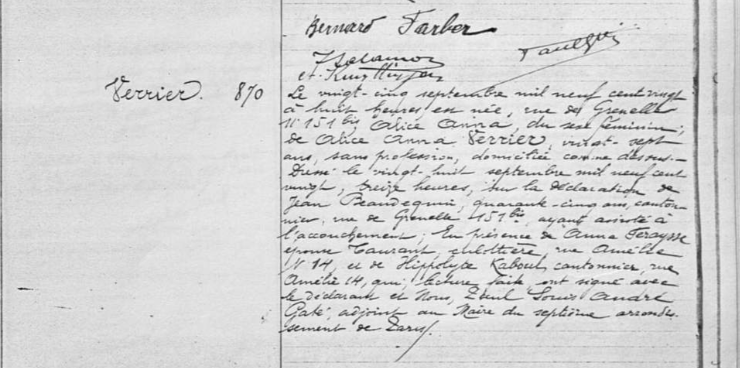 Bernard Farber
Verrier. 870
Le vingt-cinq septembre mil neuf cent vingt
à huit heures est née, rue de Grenelle
N° 151 bis, Alice Anna, du sexe féminin,
de Alice Anna Verrier, vingt-sept
ans, sans profession, domiciliée comme dessus.-
Dressé le vingt-huit septembre mil neuf cent
vingt, treize heures, sur la déclaration de
Jean Beaudequin, quarante-cinq ans, canton-
nier, rue de Grenelle 151 bis, ayant assisté à
l'accouchement; En présence de Anna
épouse Taurant, culottière, rue Amélie
N° 14, et de Hippolyte Kaboul, cantonnier, rue
Amélie 14, qui, lecture faite, ont signé avec
le déclarant et Nous, Louis André
Gaté, adjoint au Maire du septième arrondis-
sement de Paris./.